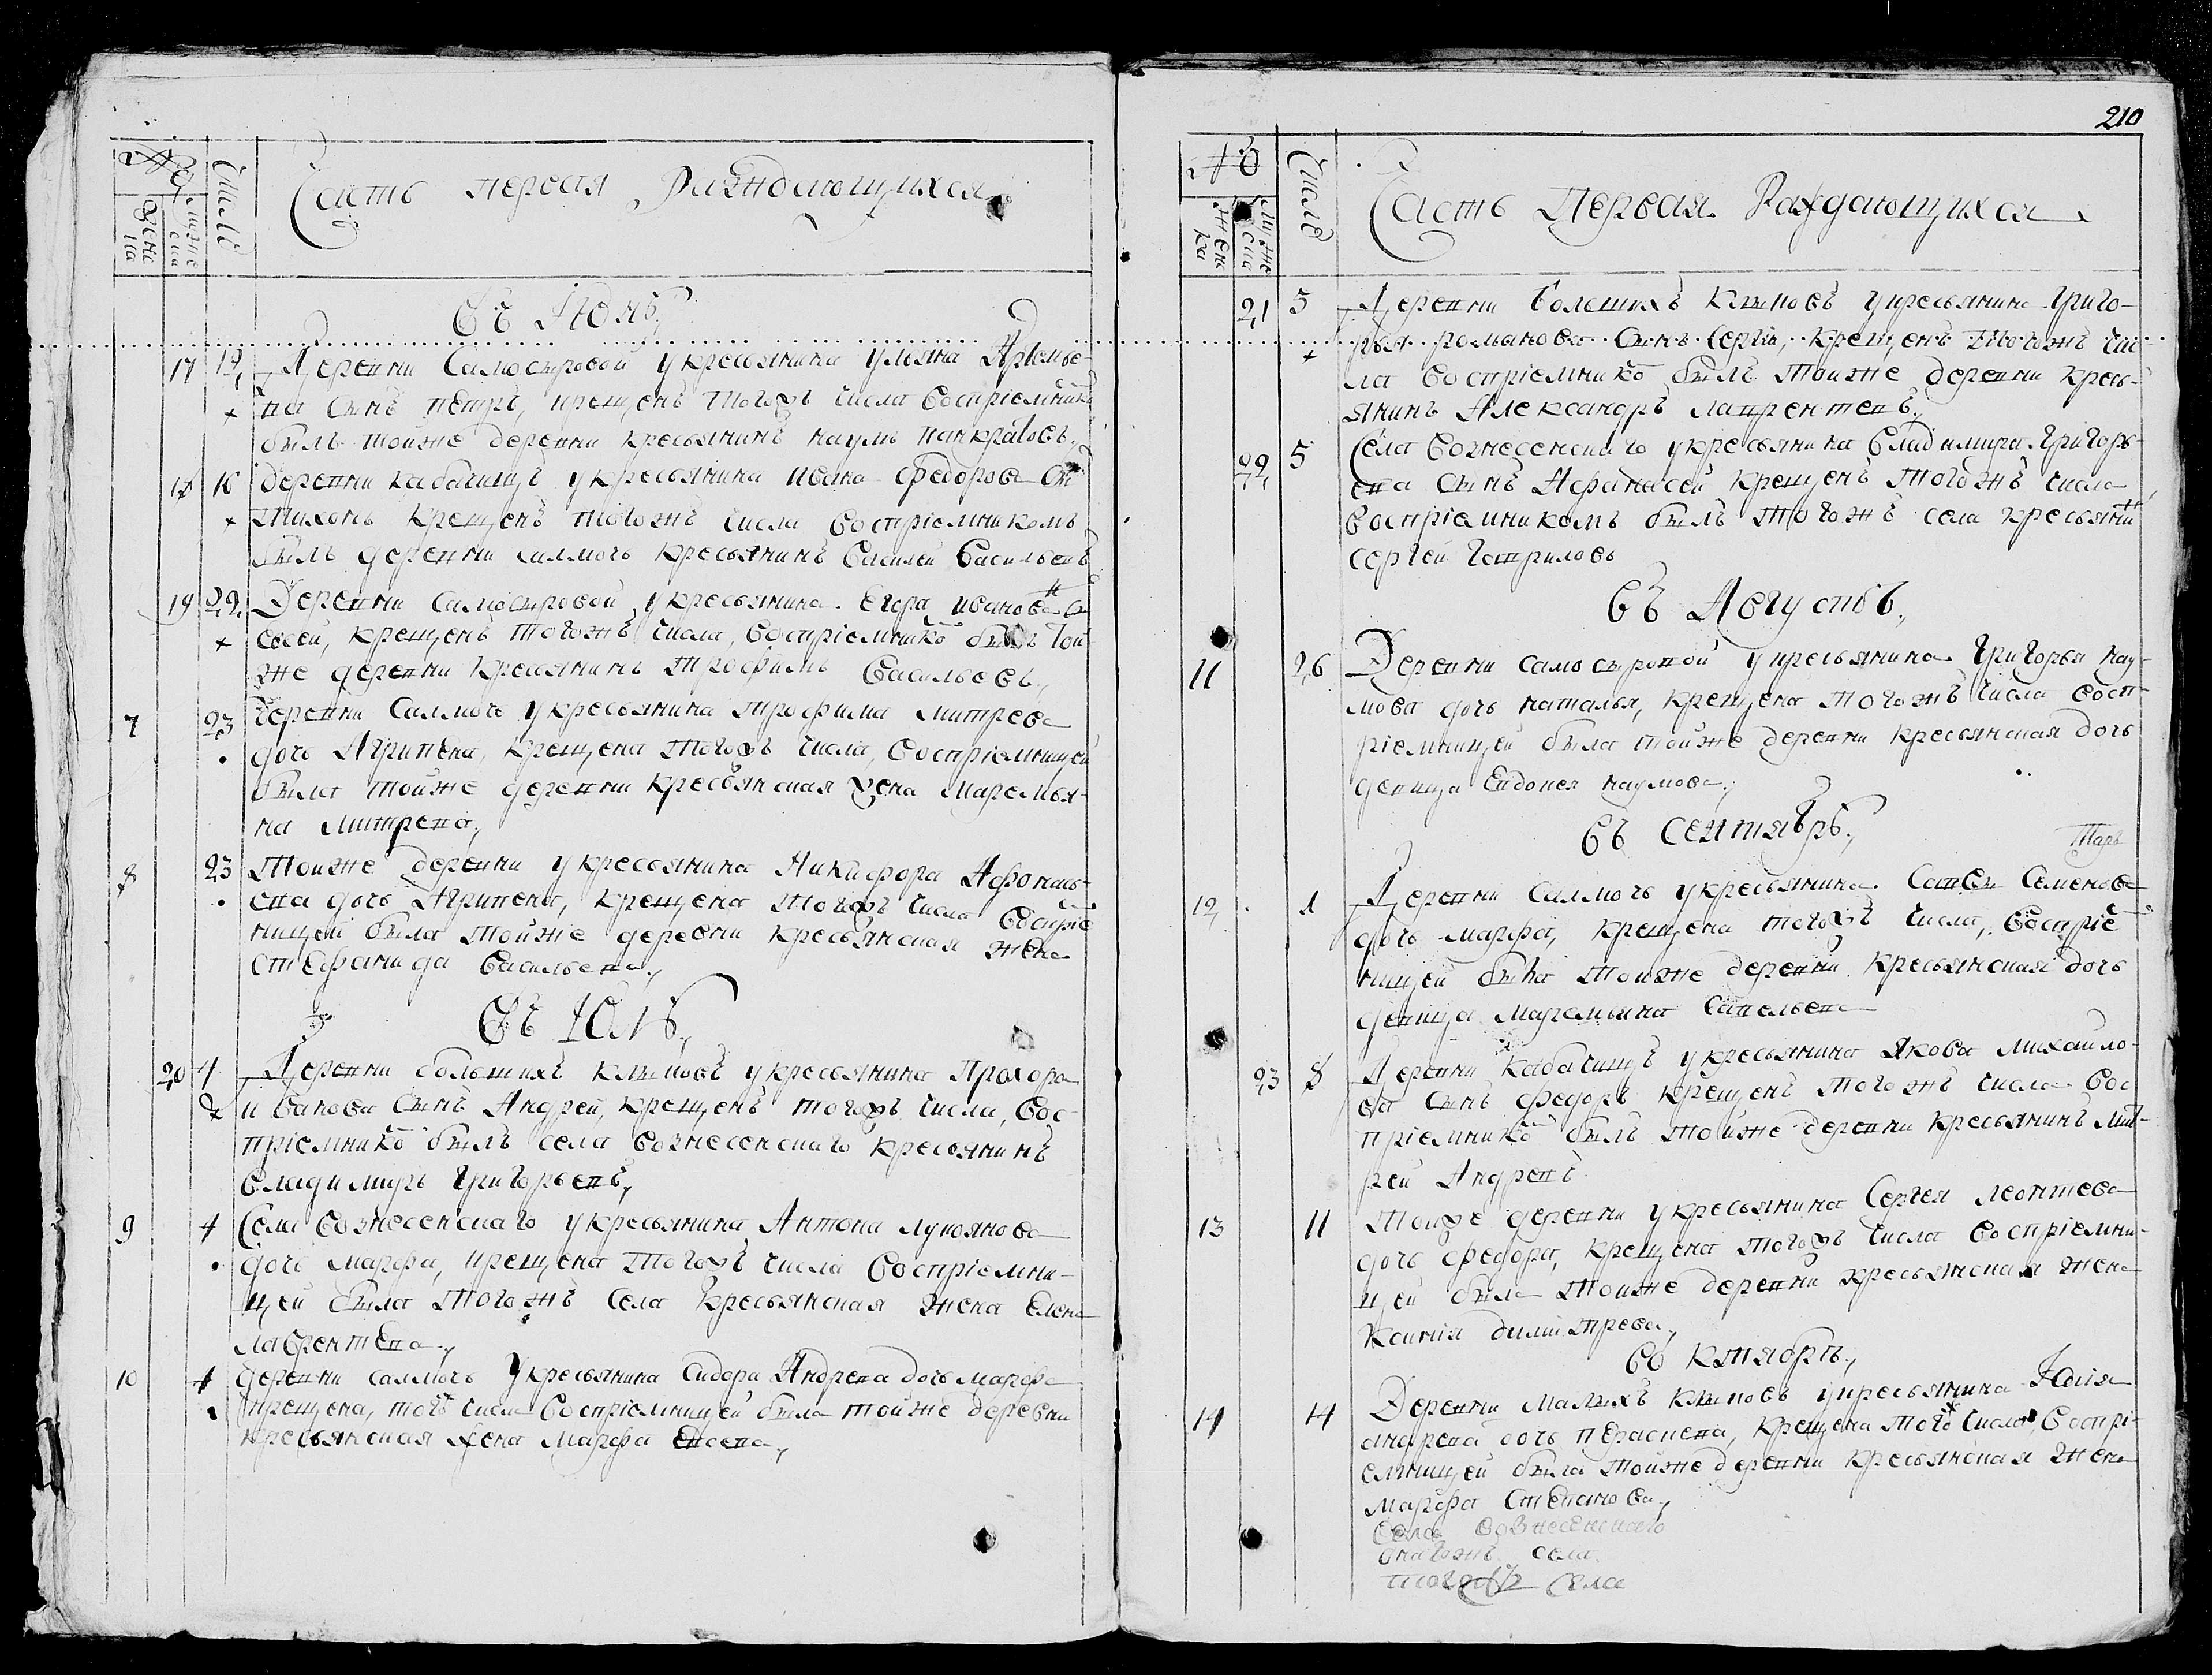 №
Число
Женска
Мужеска
Часть первая Раждающихся
Въ Июнѣ
17 19 Деревни Самосыровой у крестьянина Ульяна
на сынъ петръ, крещенъ тогожъ числа воспріемником
былъ тойже деревни кресьянинъ наумъ панкратовъ.
18 деревни Кабачищъ укресьянина ивана федорова сн
тихонъ крещенъ тогожъ числа воспріемникомъ
былъ деревни салмочь кресьянинъ василей васильевъ
19 22 Деревни самосыровой укресьянина Егора иванова
евсей, крещенъ тогожъ числа, воспріемнико былъ той
же деревни кресьянинъ трофимъ васильевъ.
7 23 деревни Салмочь укресьянина трофима митрева
дочь Агрипена, крещена тогожъ числа, воспріемницей
была тойже деревни кресьянская жена маремья-
на митрева,
8 23 Тойже деревни укресьянина Никифора Афонась-
ева дочь Агрипена, крещена тогожъ числа воспріе
ницей была тойже деревни кресьянская жена
стефанида васильева,
Въ Июлѣ
20 4 Деревни большихъ клыковъ укресьянина Прохора
иванова сынъ Андрей, крещенъ тогожъ числа, вос-
пріемнико былъ села вознесенскаго кресьянинъ
владимиръ григорьевъ,
9 4 Села вознесенскаго укресьянина Антона лукоянова
дочь марфа, крещена тогожъ числа воспріемни-
цей была тогожъ села кресьянская жена елена
лаврентева,
10 4 деревни салмочь укресьянина сидора Андрева дочь марфа
крещена, того числа воспріемницей была тойже деревни
кресьянская жена марфа
210
№
Число
Женска
Мужеска
Часть первая Раждающихся
21 5 Деревни большихъ клыковъ укресьянина григо-
рья романова сынъ сергій, крещенъ тогожъ чис
ла воспріемнико былъ тойже деревни кресь-
янинъ Александръ лаврентевъ,
22 5 Села вознесенскаго укресьянина владимира григорь-
ева сынъ Афанасей крещенъ тогожъ числа
воспріемникомъ былъ тогожъ села кресьянин
сергей гавриловъ
Въ Августѣ,
11 26 Деревни самосыровой укресьянина григорья нау-
мова дочь наталья, крещена тогожъ числа восп-
ріемницей была тойже деревни кресьянская дочь
девица Евдокея наумова,
Въ Сентябрѣ,
12 1 Деревни Салмочь укресьянина савелья семенова
дочь марфа, крещена тогожъ числа, воспріе
ницей была тойже деревни кресьянская дочь
девица маремьяна савельева
23 8 Деревни кабачищъ укресьянина якова михайло-
ва сынъ федоръ крещенъ тогожъ числа вос
пріемнико былъ тойже деревни кресьянинъ мит-
рей Андревъ
13 11 Тойже деревни укресьянина Сергея леонтева
дочь федора, крещена тогожъ числа воспріемни-
цей была тойже деревни кресьянская жена
ксинія димитрева,
во ктябрѣ,
14 14 Деревни малыхъ клыковъ укресьянина
андрева дочь параскева, крещена того числа, воспрі-
емницей была тойже деревни кресьянская жена
марфа степанова,
села вознесенскаго
села
села